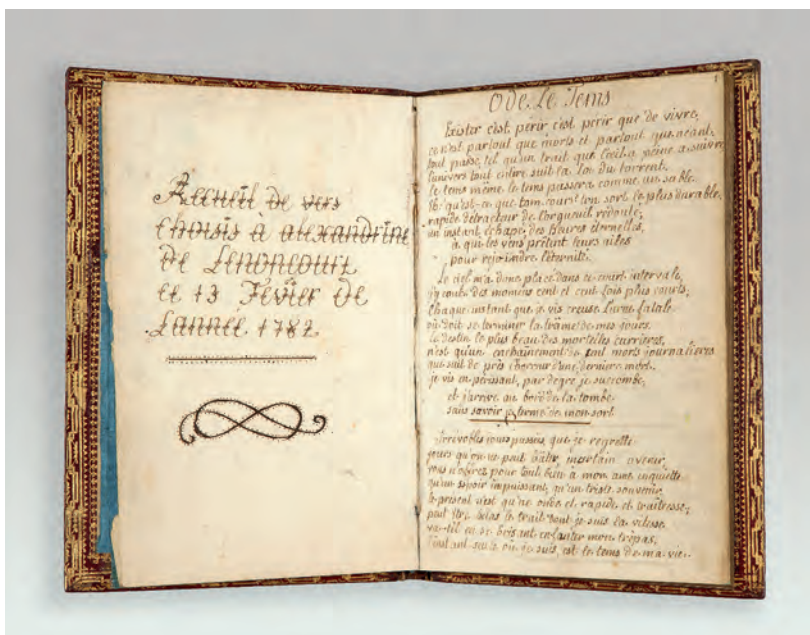 Recueil de vers
choisis à alexandrine
de Lenoncourt
ce 13 Févier de
Lannee 1782
1
Ode Le Tems
Exister c'est périr c'est périr que de vivre,
ce n'est partout que morts et partout que neant,
tout passe, tel qu'un trait que l'oeil a peine a suivre
l'univers tout entier suit la loi du torrent.
le tems même le tems passera comme un sable.
qu'est-ce que tam court ton sort le plus durable,
rapide détracteur de l'orgueuil redoute,
un instant échape des heures éternelles,
à qui les vens prêtent leurs ailes
pour rejoindre l'éternité.
Le ciel m'a donc placé dans ce court intervale,
j'y conte des momens cent et cent fois plus courts,
Chaque instant que je vis creuse l'urne fatale
où doit se terminer la trame de mes jours.
le destin le plus beau des mortelles carrieres,
n'est qu'un enchainement de morts journalieres
que suit de près l'horreur d'une derniere nuit.
je vis en perissant, par degre je succombe,
et j'arrive au bord de la tombe
sans savoir le terme de mon sort
jours passés, que je regrette
jours qu'on ne peut hâter, incertain avenir,
vous n'offrez pour tout bien à mon ame inquiette
qu'un espoir impuissant, qu'un triste souvenir.
le présent n'est qu'ne onde et rapide et traitresse,
peut être helas le trait dont je suis la vitesse
va-t-il en se brisant enfanter mon trépas,
l'instant seule où je suis, est le tems de ma vie.